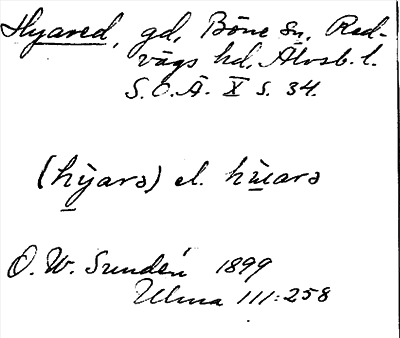 Hyared, gd, Böne sn, Red-
vägs hd, Älvsb. l.
S.O.Ä. X s. 34.
(hỳarə) el. hùarə
O. W. Sundén 1899
Ulma 111:258